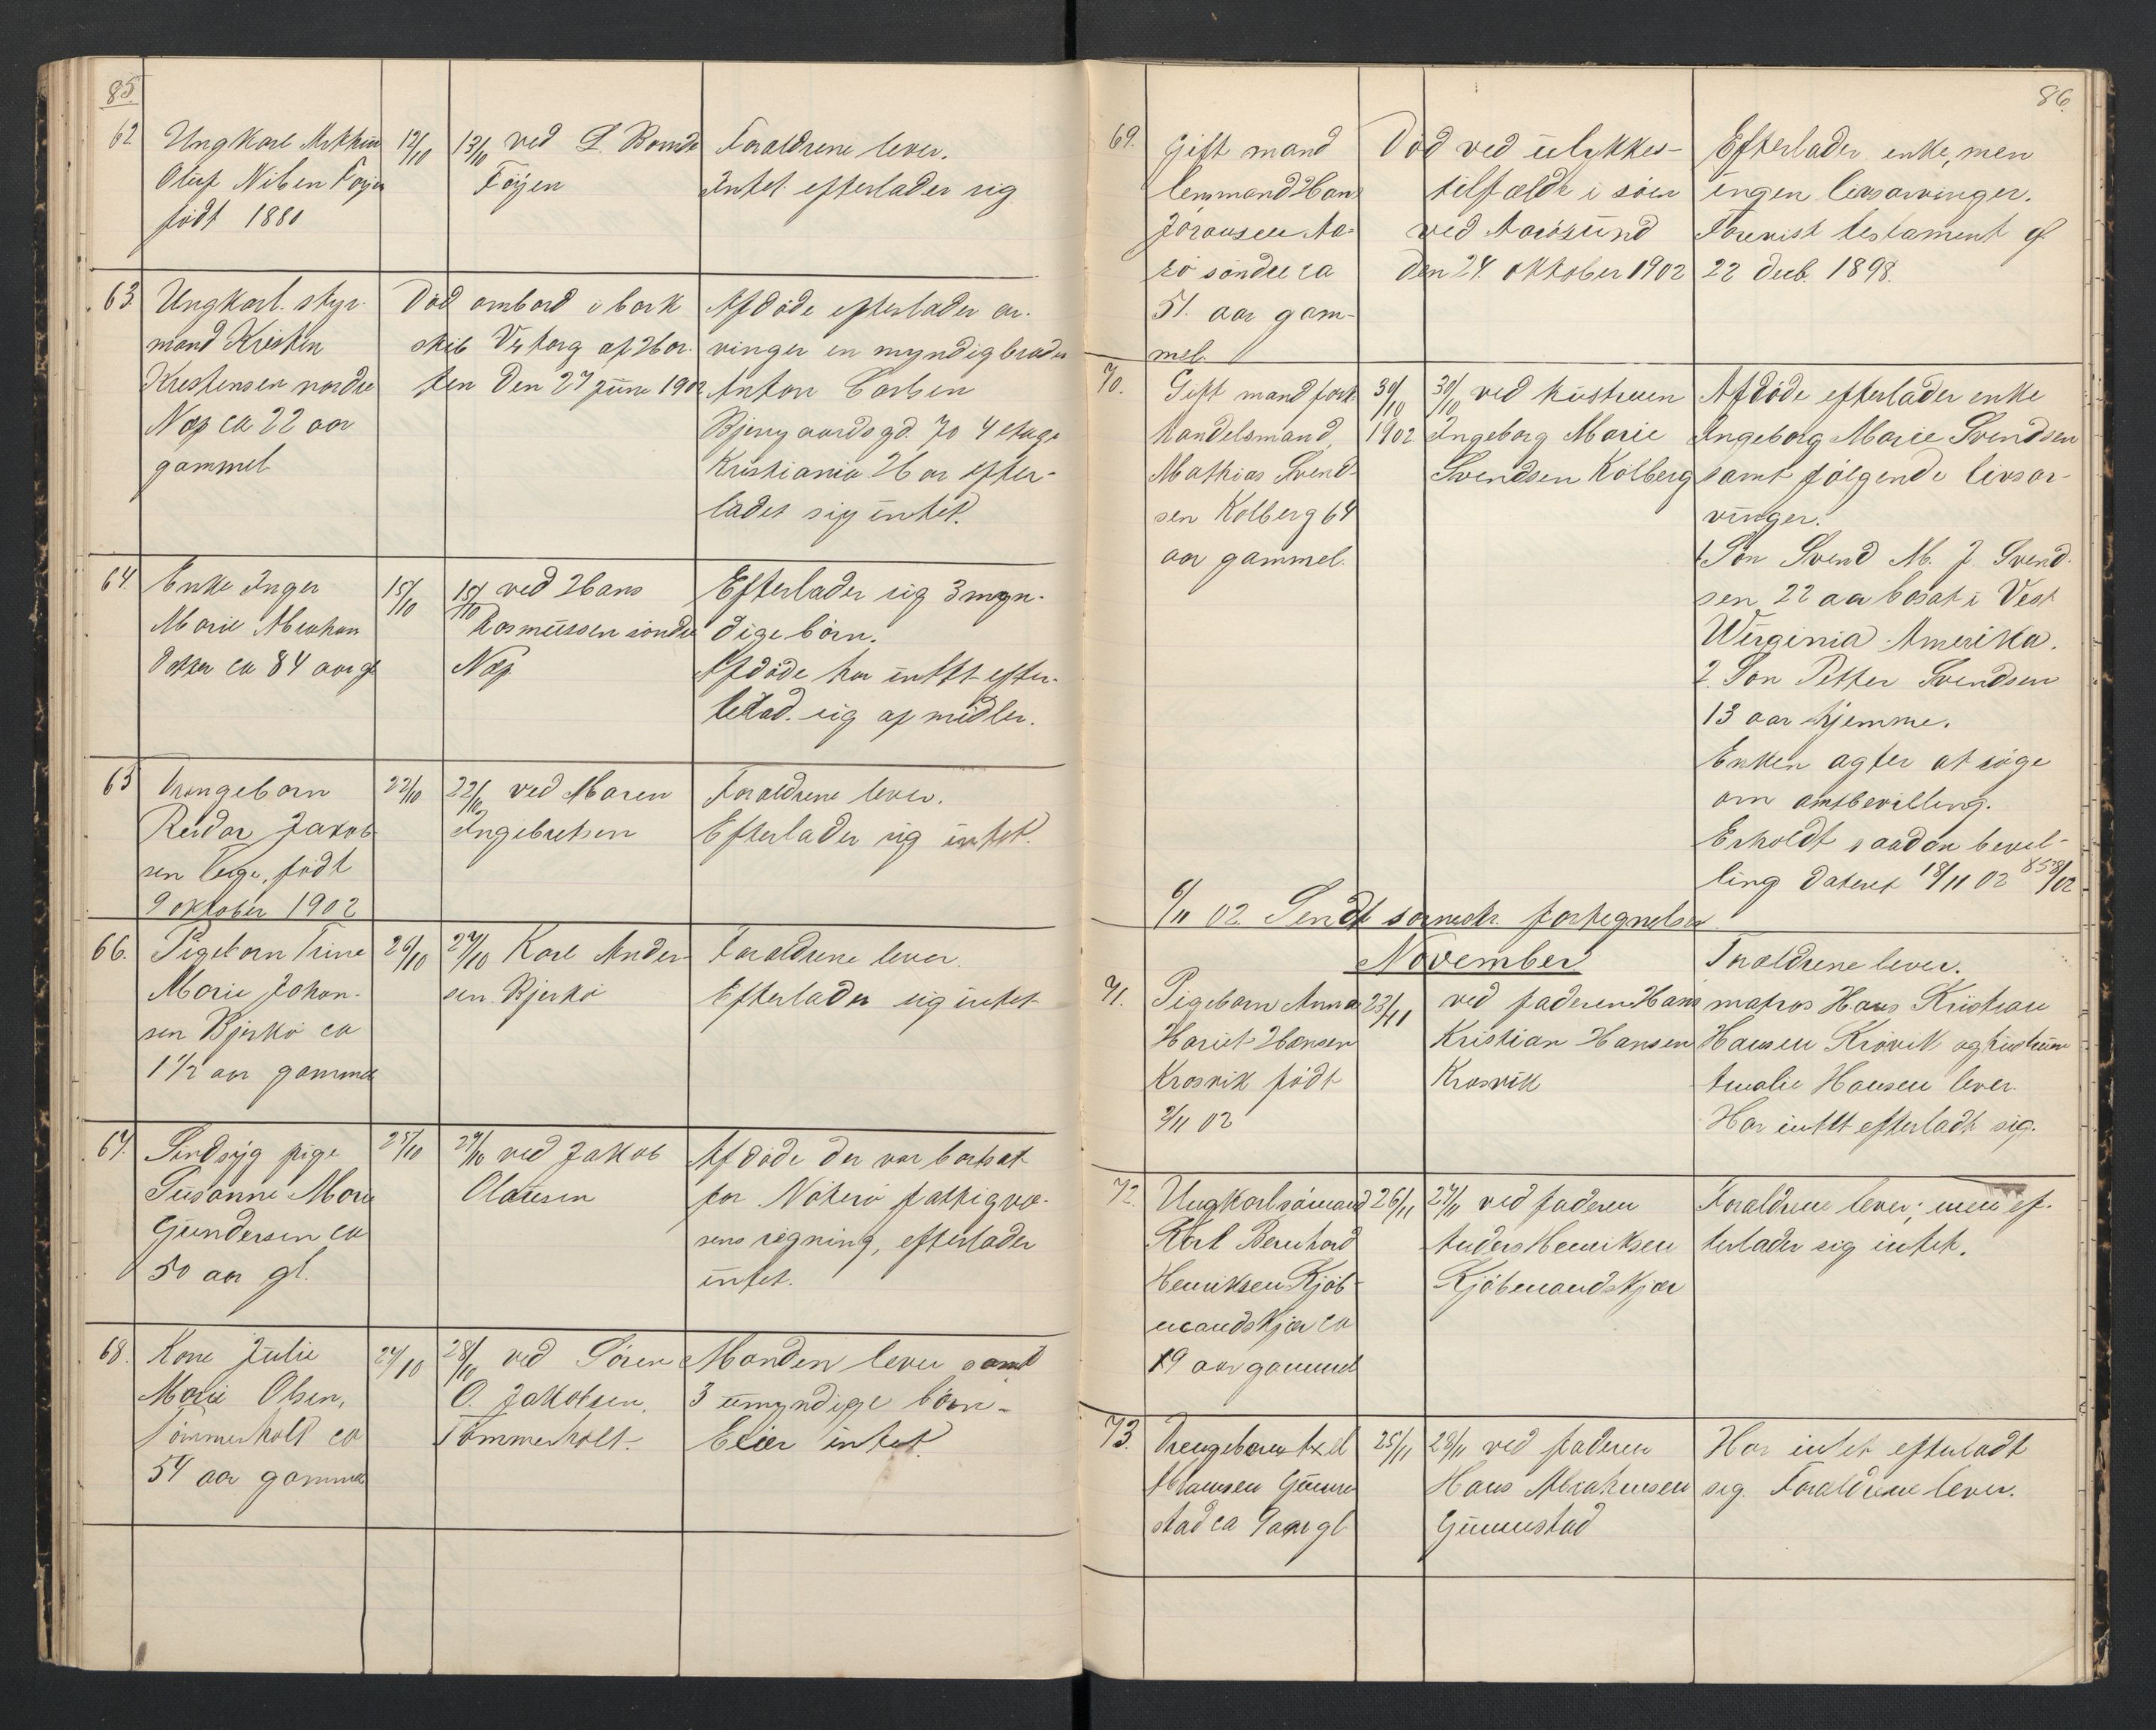 85.
62 Ungkarl
Oluf Nilsen Føyen
født 1880
12/10
13/10 ved L. Bernts
Föÿen
Foraldrene lever.
Intet efterlader sig
63 Ungkarl. styr-
mand Kristen
Kristensen nordre
Næs ca 22 aar
gammel
Død ombord i bark
skib af Hor-
ten den 27 june 1902
Afdøde efterlader ar-
vinger en myndig broder
Anton Carlsen
gd. 70 4 etage
Kristiania Har efter-
ladet sig intet.
64. Enke Inger
Marie Abraham
datter ca 84 aar gl
15/10
15/10 ved Hans
Rasmussen söndre
Næs
Efterlader sig 3 myn-
dige börn.
Afdøde har intet efter-
ladt sig af midler.
65 Drengebarn
Reidar Jakob-
sen Teige, født
9 oktober 1902
22/10
22/10 ved Maren
Ingebretsen
Foraldrene lever.
Efterlader sig intet.
66. Pigebarn Trine
Marie Johan-
sen Bjerkö ca
1 1/2 aar gammel
26/10
27/10 Karl Ander-
sen Bjerkö
Foraldrene lever.
Efterlader sig intet
67. Sindsyg pige
Susanne Marie
Gundersen ca
50 aar gl.
25/10
27/10 ved Jakob
Olausen
Afdøde der var bortsat
for Nøterö fattigvæ-
sens regning, efterlader
intet.
68. Kone Julie
Marie Olsen,
Tömmerholt ca
54 aar gammel
27/10
28/10 ved Sören
O. Jakobsen,
Tömmerholt.
Manden lever samt
3 umyndige börn.
Eier intet.
86.
69. Gift mand
lensmand Hans
Jöransen Aa-
rö söndre ca
51. aar gam-
mel.
Död ved ulykkes-
tilfælde i söen
ved Aarösund
den 24. oktober 1902
Efterlader enke, men
ingen livsarvinger.
testament af
22 decb. 1898.
70. Gift mand forh.
handelsmand,
Mathias Svend-
sen Kolberg 64
aar gammel.
30/10
1902
30/10 ved hustruen
Ingeborg Marie
Svendsen Kolberg
Afdøde efterlader enke
Ingeborg Marie Svendsen
samt følgende livsar-
vinger.
1. Søn Svend M. J. Svend-
sen 22 aar bosat i Vest
Wirginia Amerika.
2. Søn Petter Svendsen
13 aar hjemme.
Enken agter at søge
om amtsbevilling.
Erholdt saadan bevil-
ling dateret 18/11 02 858/02
6/11 02. Sendt fortegnelse
November
71. Pigebarn Anna
Hariet Hansen
Krosvik født
9/11 02
23/11
ved faderen Hans
Kristian Hansen
Krosvik
Foraldrene lever.
matros Hans Kristian
Hansen Krosvik og hustru
Amalie Hansen lever
Har intet efterladt sig.
72. Ungkarl sömand
Karl Bernhard
Henriksen Kjöb-
mandskjær ca
19 aar gammel
26/11
27/11 ved faderen
Anders Henriksen
Kjöbmandskjær
Foraldrene lever; men ef-
terlader sig intet.
73. Drengebarn Axel
Abramsen Gunne-
stad ca 9 aar gl
25/11
28/11 ved faderen
Hans Abrahamsen
Gunnestad
Har intet efterladt
sig. Foraldrene lever.